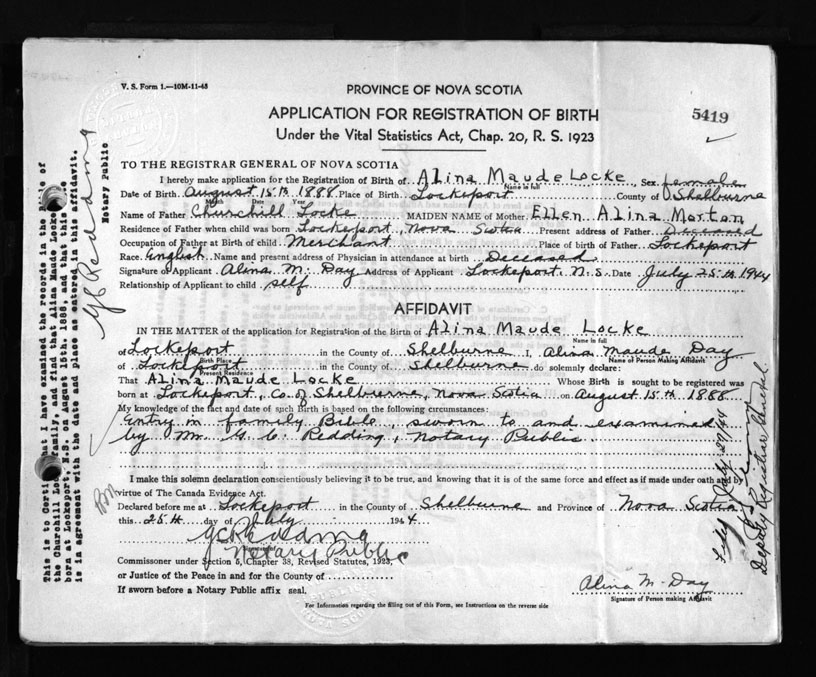 V. S. Form 1.—10M-11-43
PROVINCE OF NOVA SCOTIA
APPLICATION FOR REGISTRATION OF BIRTH
5419
Under the Vital Statistics Act, Chap. 20, R. S. 1923
TO THE REGISTRAR GENERAL OF NOVA SCOTIA
I hereby make application for the Registration of Birth of Alina Maude Locke Sex female
Name in full
Date of Birth August 15th 1888 Place of Birth Lockeport County of Shelburne
Month Date Year
Name of Father Churchill Locke MAIDEN NAME of Mother Ellen Alina Morton
Residence of Father when child was born Lockeport, Nova Scotia Present address of Father Deceased
Occupation of Father at Birth of child Merchant Place of birth of Father Lockeport
Race English Name and present address of Physician in attendance at birth Deceased
Signature of Applicant Alina M. Day Address of Applicant Lockeport, N.S. Date July 25th 1944
Relationship of Applicant to child self
AFFIDAVIT
IN THE MATTER of the application for Registration of the Birth of Alina Maude Locke
Name in full
of Lockeport in the County of Shelburne I, Alina Maude Day
Birth Place Name of Person Making Affidavit
of Lockeport in the County of Shelburne do solemnly declare:
Present Residence
That Alina Maude Locke Whose Birth is sought to be registered was
born at Lockeport, Co. of Shelburne, Nova Scotia on August 15th 1888
My knowledge of the fact and date of such Birth is based on the following circumstances:
Entry in family Bible, sworn to and examined
by Mr. G. C. Redding, Notary Public
I make this solemn declaration conscientiously believing it to be true, and knowing that it is of the same force and effect as if made under oath and by
virtue of The Canada Evidence Act.
Declared before me at Lockeport in the County of Shelburne and Province of Nova Scotia,
this 25th day of July 1944
G C Redding
Notary Public
Commissioner under Section 5, Chapter 38, Revised Statutes, 1923,
or Justice of the Peace in and for the County of
If sworn before a Notary Public affix seal.
Alina M. Day
Signature of Person making Affidavit
For Information regarding the filling out of this Form, see Instructions on the reverse side
This is to Certify that I have examined the records in the Bible of
the Churchill Locke family, and find that Alina Maude Locke
born at Lockeport, N.S. on August 15th. 1888, and that this
is in agreement with the date and place as entered in this affidavit.
G C Redding
Notary Public
July 29/44
Deputy Registrar